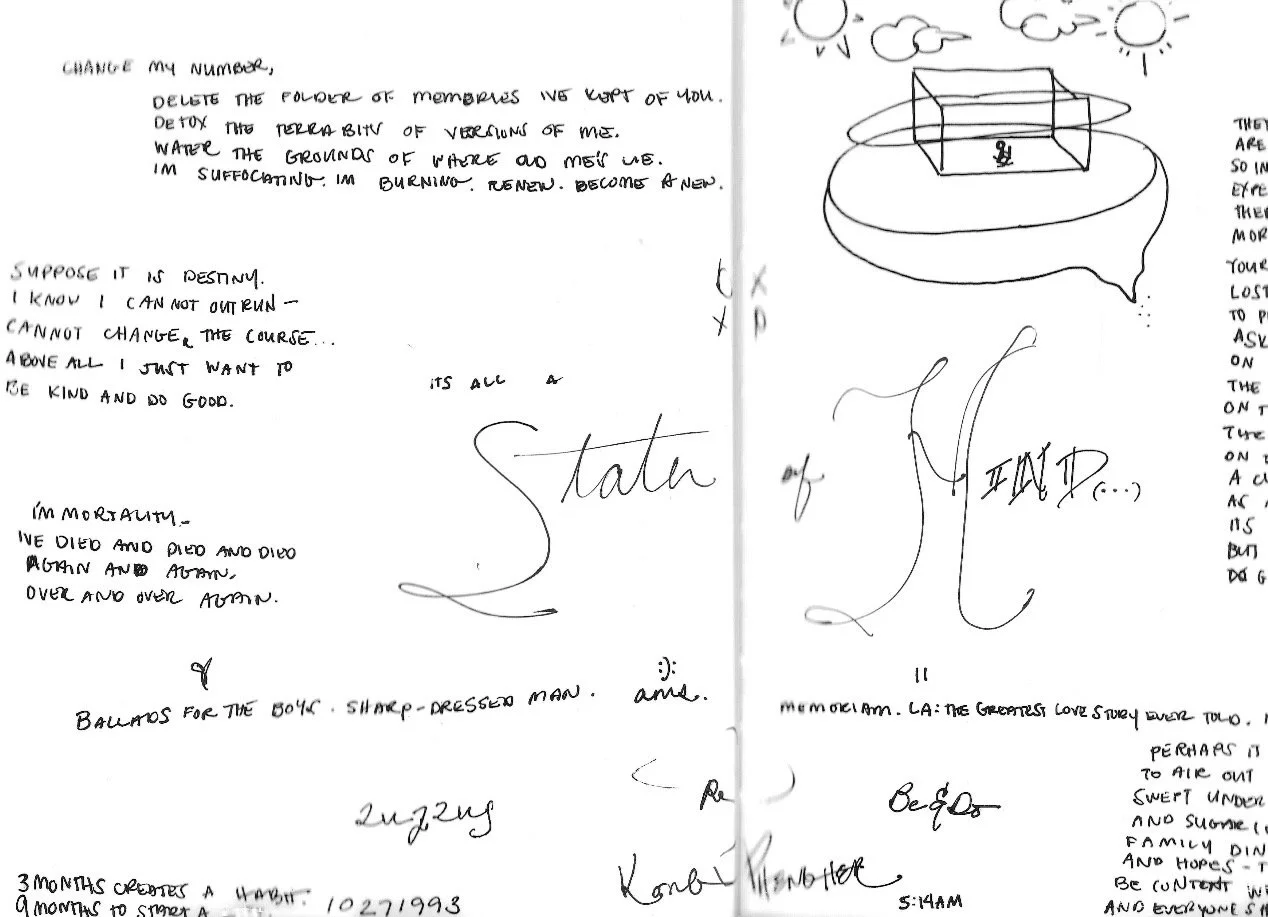 CHANGE MY NUMBER,
DELETE THE FOLDER OF MEMORIES IVE KEPT OF YOU.
DETOX THE TERRABITS OF VERSIONS OF ME.
WATER THE GROUNDS OF WHERE OLD ME'S LIE.
IM SUFFOCATING. IM BURNING. RENEW. BECOME A NEW.
SUPPOSE IT IS DESTINY.
I KNOW I CANNOT OUTRUN —
CANNOT CHANGE, THE COURSE...
ABOVE ALL I JUST WANT TO
BE KIND AND DO GOOD.
I'M MORTALITY_
IVE DIED AND DIED AND DIED
AGAIN AND AGAIN,
OVER AND OVER AGAIN.
ITS ALL A
State
of
MIND(...)
BALLADS FOR THE BOYS. SHARP-DRESSED MAN.
:):
ams.
11
MEMORIAM. LA: THE GREATEST LOVE STORY EVER TOLD.
zugzug
Re
Be&Do
3 MONTHS CREATES A HABIT.
9 MONTHS TO START A
10271993
5:14AM
X
X
THEY
ARE
SO IN
EXPE
THER
MOR
YOUR
LOST
TO P
ASK
ON
THE
ON T
THE
ON T
A CU
AS A
ITS
BUT
DO G
PERHAPS IT
TO AIR OUT
SWEPT UNDER
AND SUGAR
FAMILY DIN
AND HOPES - T
BE CONTENT WE
AND EVERYONE SH